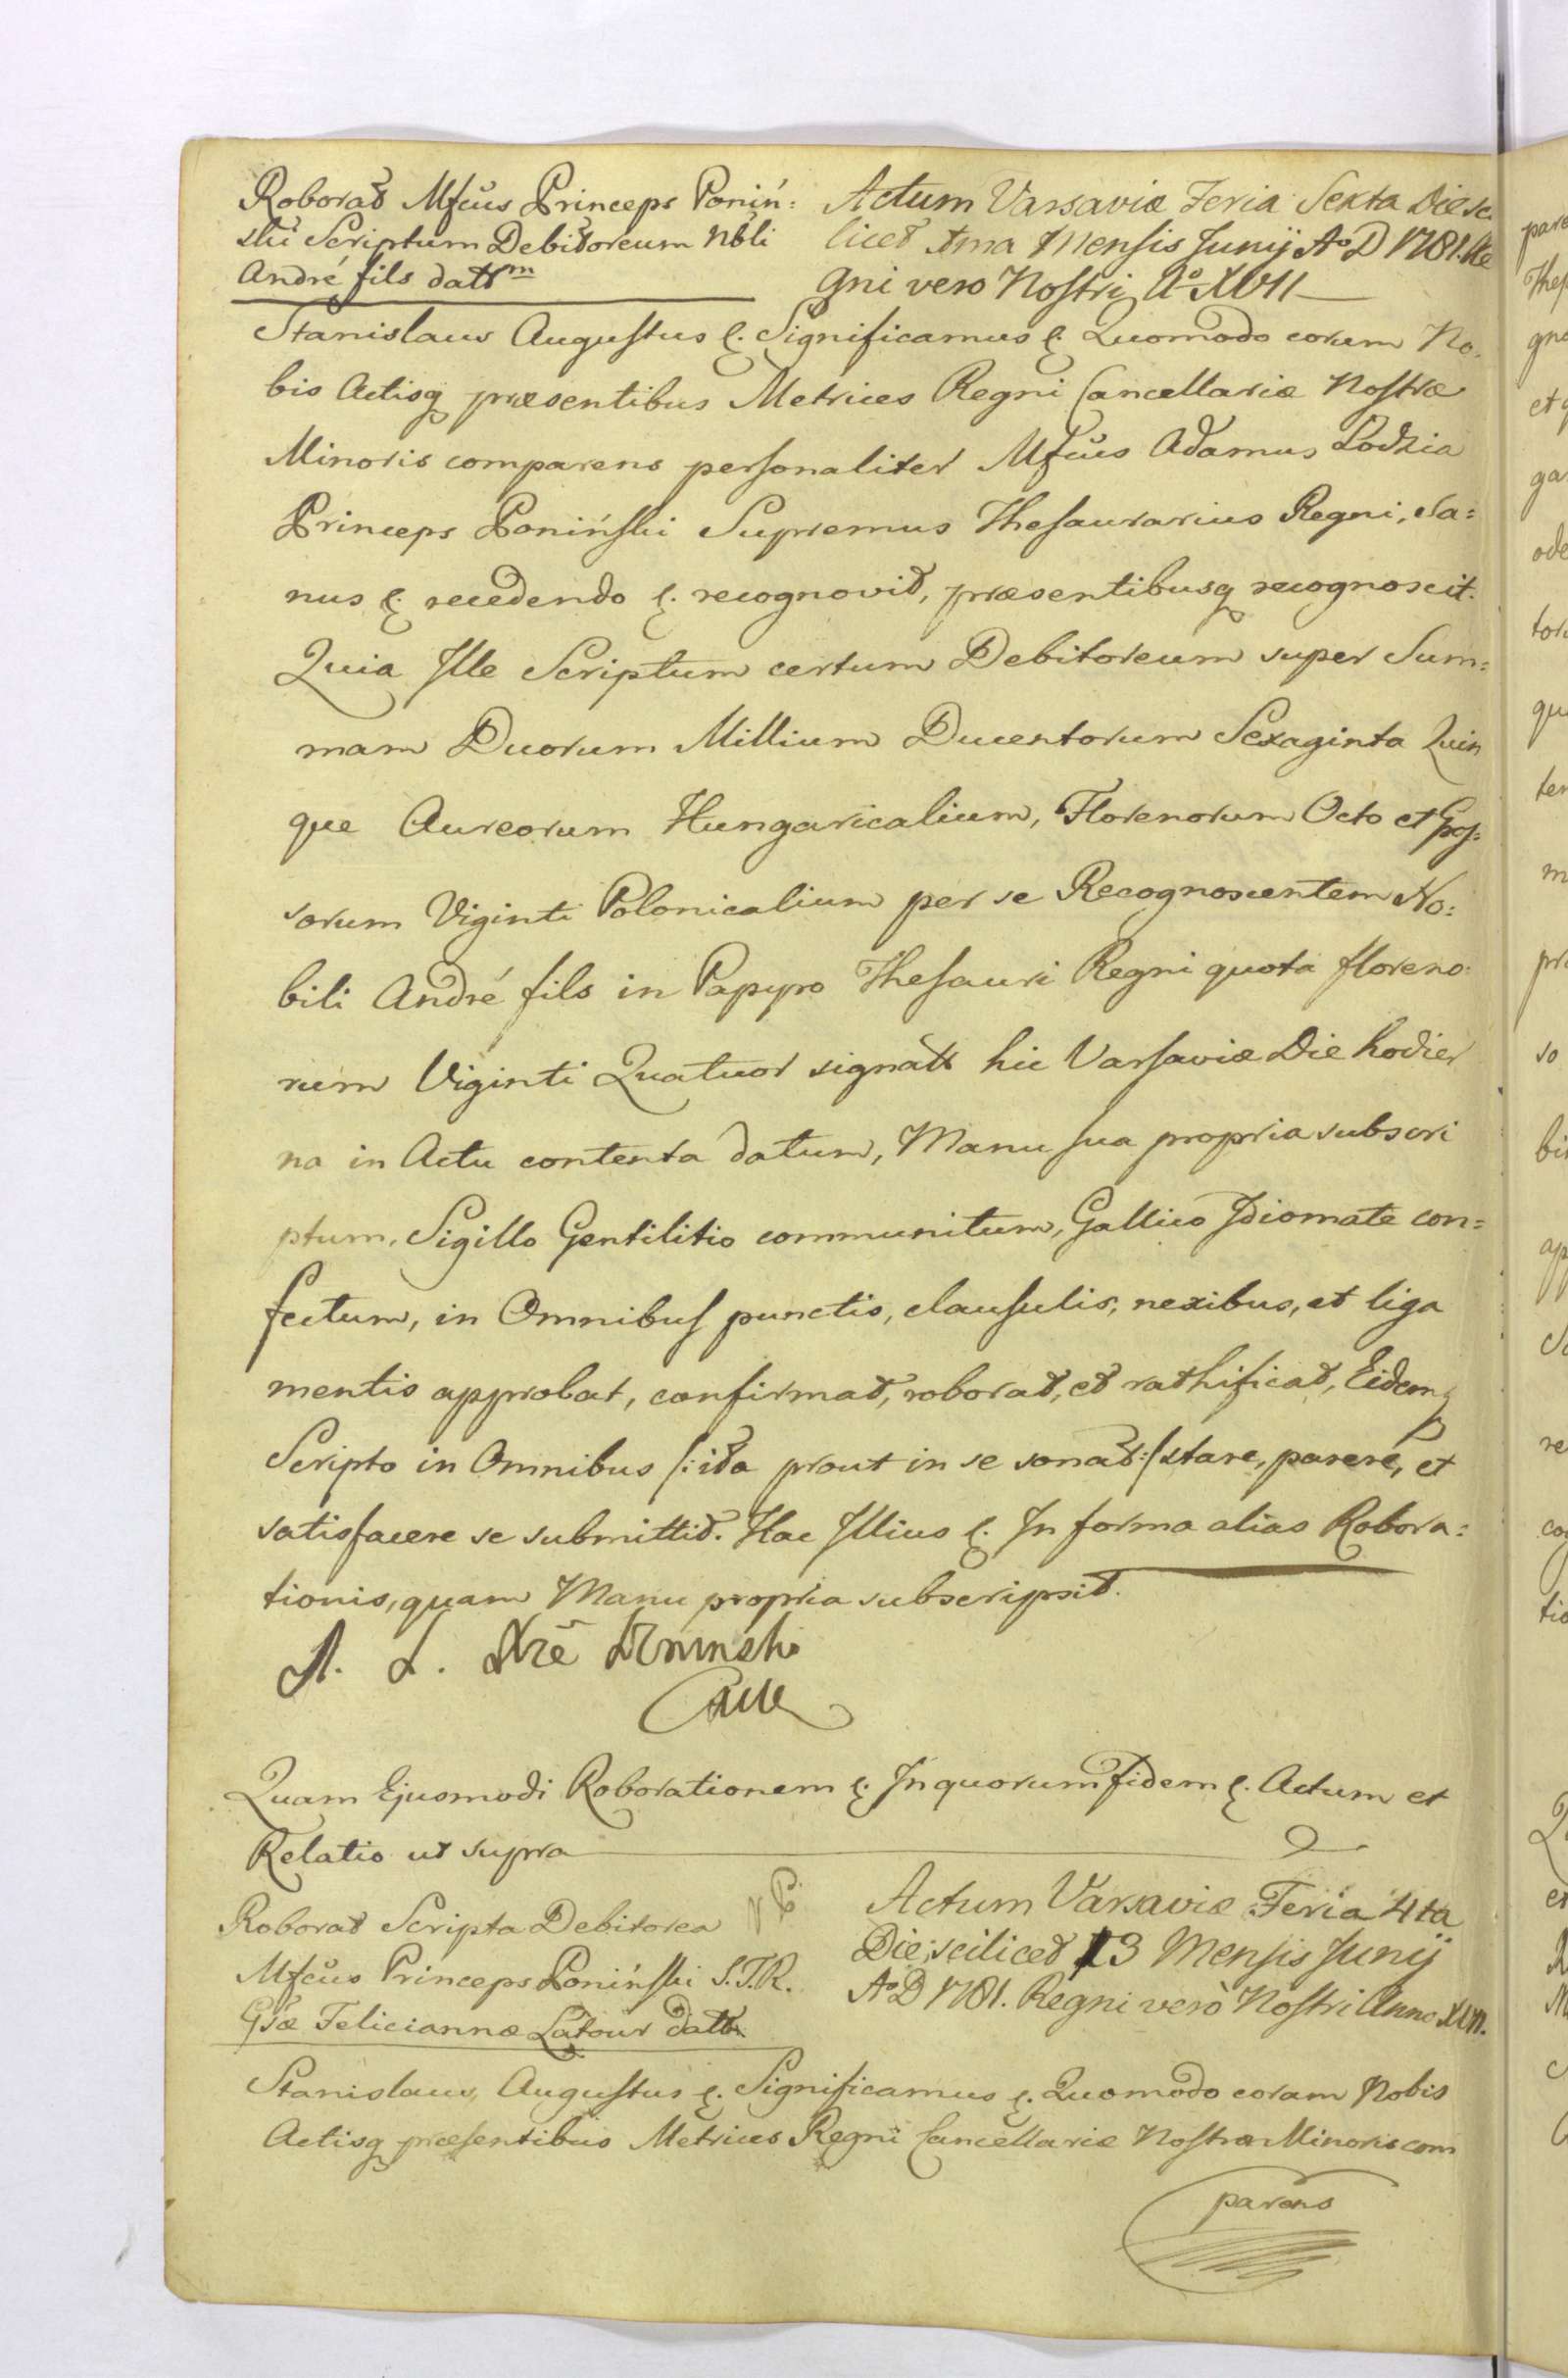 Roborat Mfcus Princeps Poniń:
ski Scriptum Debitoreum Nbli
André fils datt^m
Actum Varsaviæ Feria Sexta Die sci
licet 1ma Mensis Junij A°D 1781. Re
gni vero Nostri A° XVII
Stanislaus Augustus &. Significamus &. Quomodo coram No:
bis Actisq præsentibus Metrices Regni Cancellariæ Nostræ
Minoris comparens personaliter Mfcus Adamus Lodzia
Princeps Poniński Supremus Thesaurarius Regni, Sa:
nus &. recedendo &. recognovit, præsentibusq recognoscit.
Quia Ille Scriptum certum Debitoreum super Sum:
mam Duorum Millium Ducentorum Sexaginta Quin
que Aureorum Hungaricalium, Florenorum Octo et Gros:
sorum Viginti Polonicalium per se Recognoscentem No:
bili André fils in Papyro Thesauri Regni quota floreno:
rum Viginti Quatuor signatt hic Varsaviæ Die hodier
na in Actu contenta datum, Manu sua propria subscri
ptum, Sigillo Gentilitio communitum, Gallico Idiomate con:
fectum, in Omnibus punctis, clausulis, nexibus, et liga
mentis approbat, confirmat, roborat, et rathificat, Eidemq
Scripto in Omnibus /: ita prout in se sonat :/ stare, parere, et
satisfacere se submittit. Hac Illius &. In forma alias Robora:
tionis, quam Manu propria subscripsit.
A. L. Poninski
Quam Ejusmodi Roborationem &. In quorum fidem &. Actum et
Relatio ut supra
Roborat Scripta Debitorea
Mfcus Princeps Poniński S.T.R.
Gsæ Feliciannæ Latour datt
Actum Varsaviæ Feria 4ta
Die scilicet 13 Mensis Junij
A°D 1781. Regni verò Nostri Anno XVII.
Stanislaus Augustus &. Significamus &. Quomodo coram Nobis
Actisq præsentibus Metrices Regni Cancellariæ Nostræ Minoris com
parens